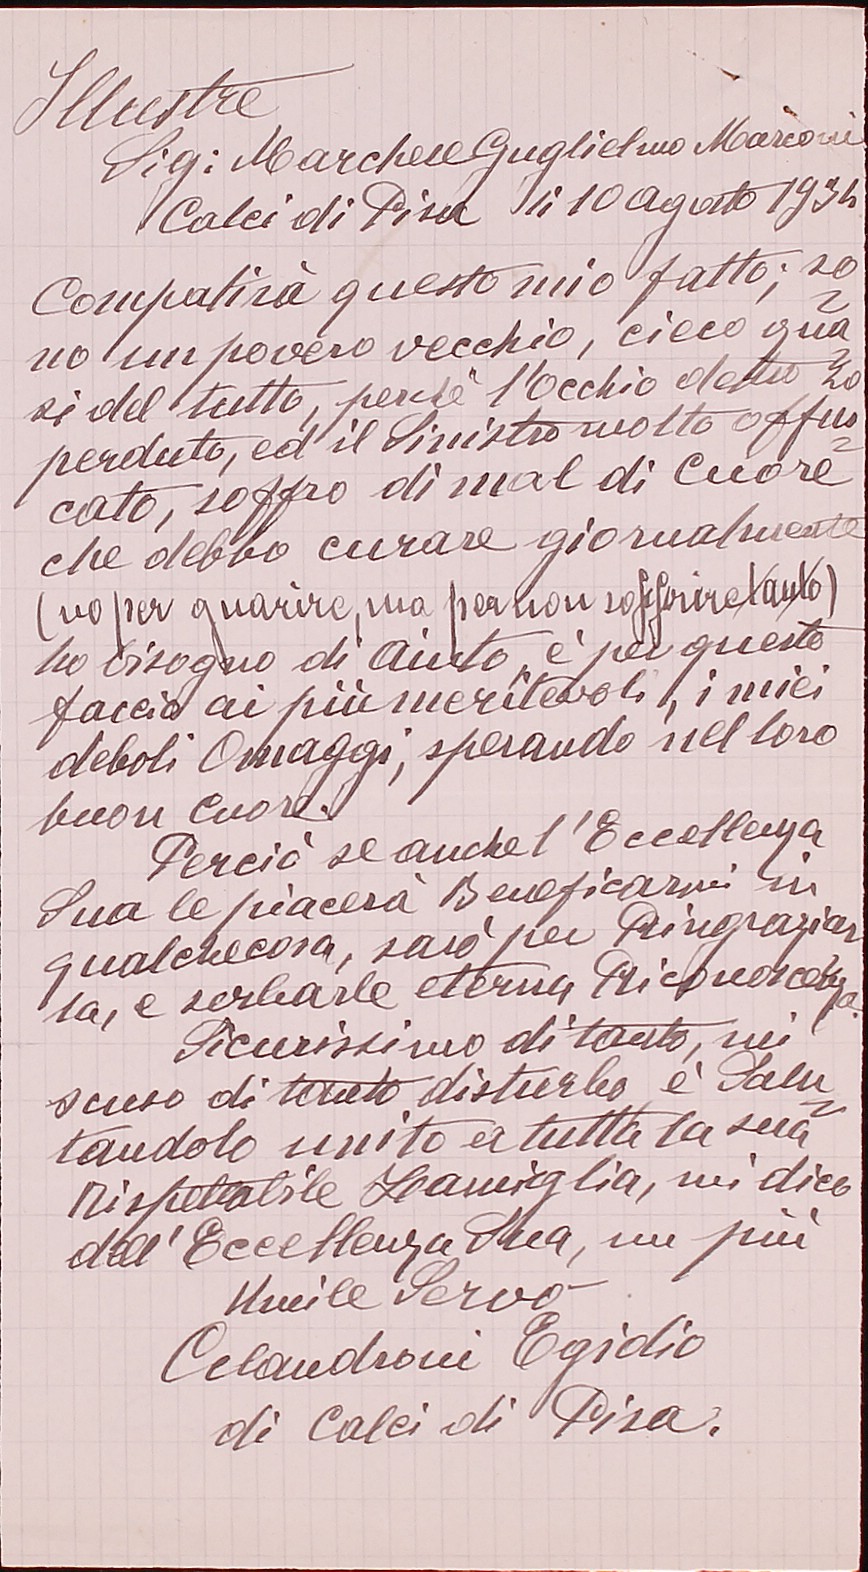 Illustre
Sig: Marchese Guglielmo Marconi
Calci di Pisa li 10 agosto 1934
Compatirà questo mio fatto; so
no un povero vecchio, cieco qua
si del tutto, perchè l'occhio destro ho
perduto, ed il Sinistro molto offus
cato, soffro di mal di Cuore
che debbo curare giornalmente
(no per guarire, ma per non soffrire tanto)
ho bisogno di aiuto, è per questo
faccio ai più meritevoli, i miei
deboli Omaggi, sperando nel loro
buon Cuore.
Perciò se anche l'Eccellenza
Sua le piacerà Beneficarmi in
qualchecosa, sarò per Ringraziar
la, e serbarle eterna Riconoscenza.
Sicurissimo di tanto, mi
scuso di tanto disturbo è Salu
tandolo unito a tutta la sua
Rispettabile Famiglia, mi dico
dell'Eccellenza Sua, un più
Umile Servo
Celandroni Egidio
di Calci di Pisa.